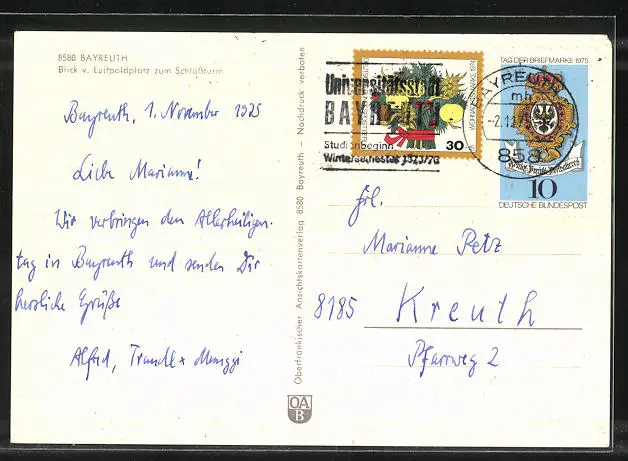 8580 BAYREUTH
Blick v. Luitpoldplatz zum Schloßturm
Bayreuth, 1. November 1975
Liebe Marianne!
Wir verbringen den Allerheiligen-
tag in Bayreuth und senden Dir
herzliche Grüße
Alfred, Traudl +
Oberfränkischer Ansichtskartenverlag 8580 Bayreuth – Nachdruck verboten
OA
B
Universitätsstadt
BAYREUTH
Studienbeginn
Wintersemester 1975/76
WEIHNACHTSMARKE 1974
30
BAYREUTH
mh
858
TAG DER BRIEFMARKE 1975
10
DEUTSCHE BUNDESPOST
Frl.
Marianne Petz
8185 Kreuth
Pfarrweg 2